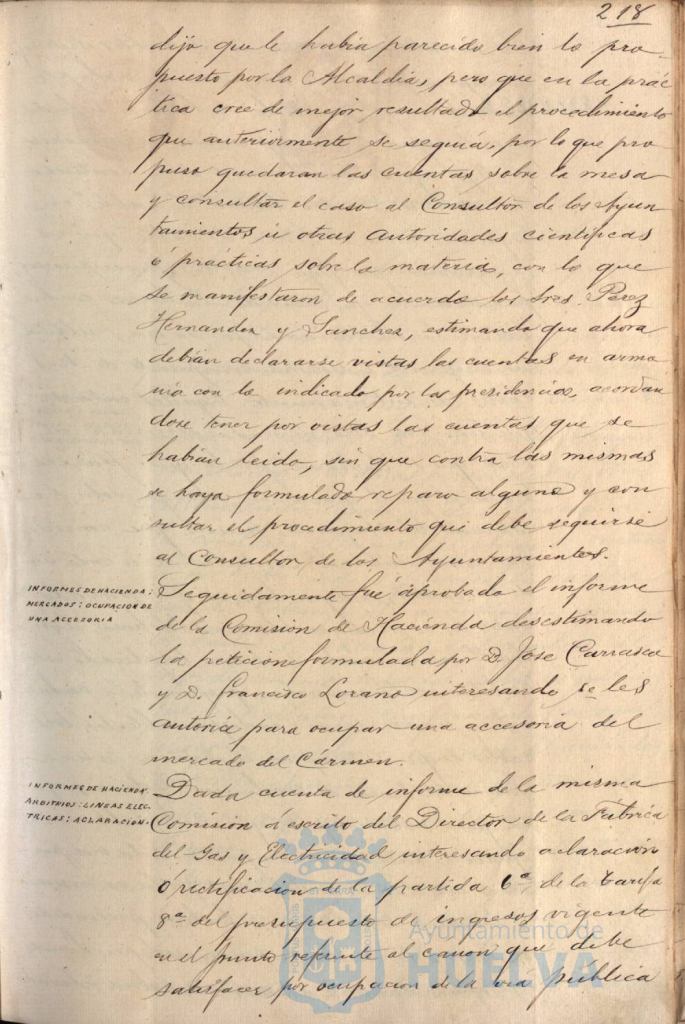 218
dijo que le habia parecido bien lo pro-
puesto por la Alcaldia, pero que en la prác
tica cree de mejor resultado el procedimiento
que anteriormente se seguia, por lo que pro
puso quedaran las cuentas sobre la mesa
y consultar el caso al Consultor de los Ayun
tamientos ú otras autoridades cientificas
ó prácticas sobre la materia, con lo que
se manifestaron de acuerdo los Sres. Perez
Hernandez y Sanchez, estimando que ahora
debian declararse vistas las cuentas en armo
nia con lo indicado por la presidencia, acordan
dose tener por vistas las cuentas que se
habian leido, sin que contra las mismas
se haya formulado reparo alguno y con
sultar el procedimiento que debe seguirse
al Consultor de los Ayuntamientos.
INFORMES DE HACIENDA:
MERCADOS: OCUPACION DE
UNA ACCESORIA
Seguidamente fué aprobado el informe
de la Comision de Hacienda desestimando
la peticion formulada por D. José Carrasco
y D. Francisco Lorano interesando se les
autorice para ocupar una accesoria del
mercado del Cármen.
INFORMES DE HACIENDA
ARBITRIOS: LINEAS ELEC-
TRICAS: ACLARACION.
Dada cuenta de informe de la misma
Comision á escrito del Director de la Fábrica
del Gas y Electricidad interesando aclaración
ó rectificacion de la partida 6ª de la tarifa
8ª del presupuesto de ingresos vigente
en el punto referente al canon que debe
satisfacer por ocupacion de la via pública
Ayuntamiento de
HUELVA